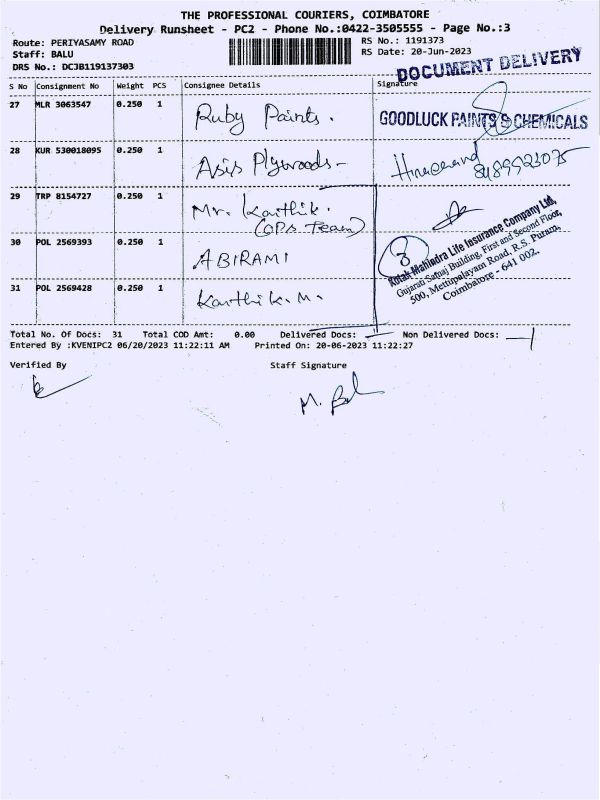 THE PROFESSIONAL COURIERS, COIMBATORE
Delivery Runsheet - PC2 - Phone No.:0422-3505555 - Page No.:3
Route: PERIYASAMY ROAD
RS No.: 1191373
Staff: BALU
RS Date: 20-Jun-2023
DRS No.: DCJB119137303
DOCUMENT DELIVERY
S No Consignment No Weight PCS Consignee Details Signature
27 MLR 3063547 0.250 1 Ruby Paints.
GOODLUCK PAINTS & CHEMICALS
28 KUR 530018095 0.250 1 Asis Plywoods-
29 TRP 8154727 0.250 1 Mr. Karthik.
(OPs Team)
30 POL 2569393 0.250 1 ABIRAMI
3
Kotak Mahindra Life Insurance Company Ltd,
Gujarati Samaj Building, First and Second Floor,
500, Mettupalayam Road, R.S. Puram,
Coimbatore - 641 002.
31 POL 2569428 0.250 1 Karthik. M.
Total No. Of Docs: 31 Total COD Amt: 0.00 Delivered Docs: Non Delivered Docs:
Entered By :KVENIPC2 06/20/2023 11:22:11 AM Printed On: 20-06-2023 11:22:27
Verified By Staff Signature